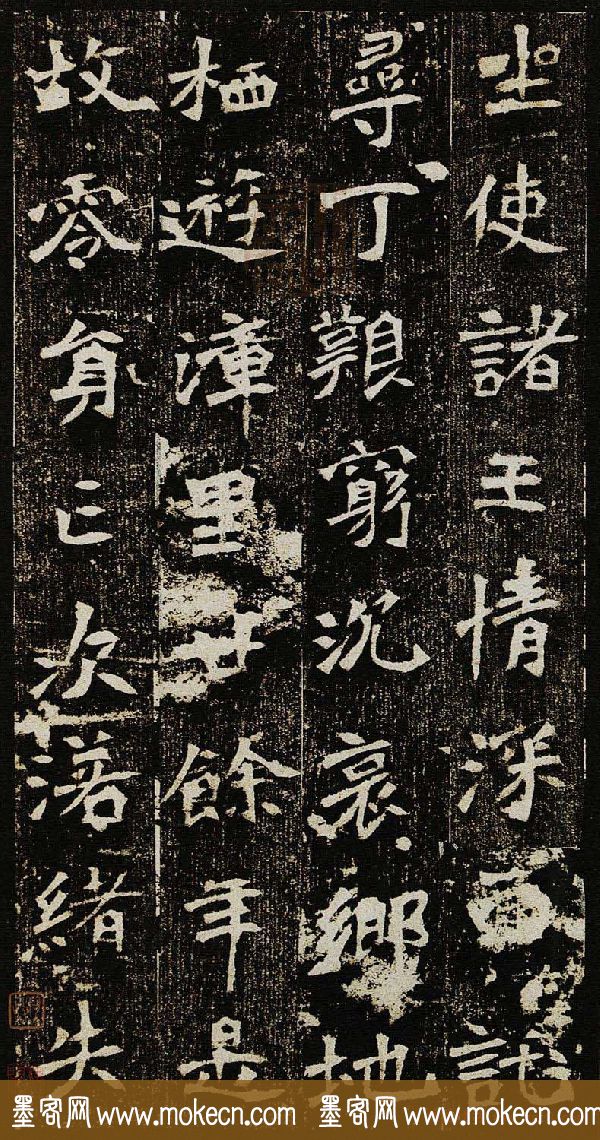 坐使諸王情深
尋丁艱窮沉哀鄉地
栖遊漳里廿餘年是
故零身亡次緒失
墨客网 www.mokecn.com 墨客网 www.mokecn.com